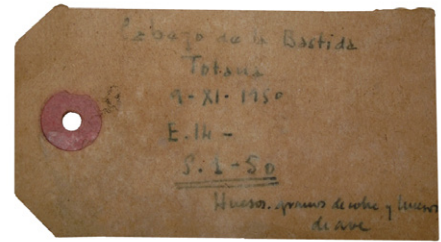 Cabezo de la Bastida
Totana
9-XI-1950
E.14-
S.I-50
Huesos. granos de cobre y huesos
de ave